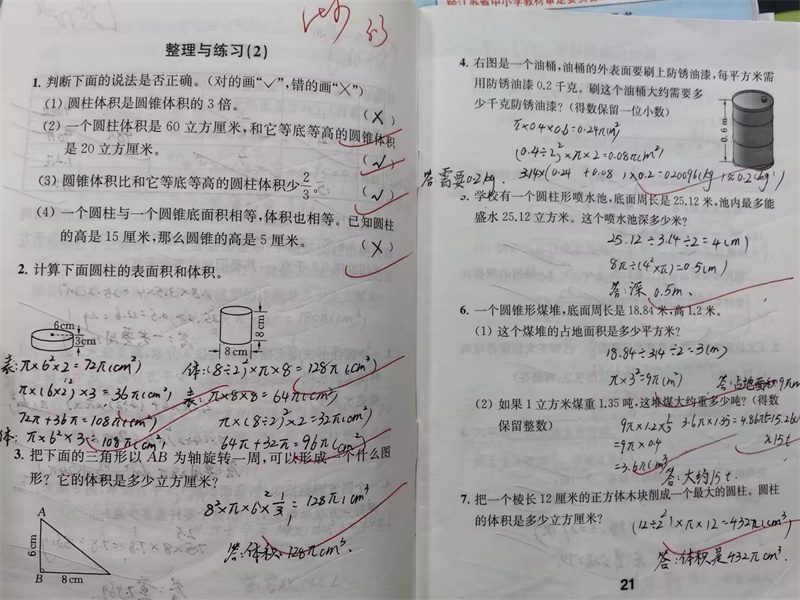 整理与练习(2)
1. 判断下面的说法是否正确。(对的画“✓”,错的画“×”)
(1) 圆柱体积是圆锥体积的3倍。 (×)
(2) 一个圆柱体积是60立方厘米,和它等底等高的圆锥体积
是20立方厘米。 (✓)
(3) 圆锥体积比和它等底等高的圆柱体积少2/3。 (✓)
(4) 一个圆柱与一个圆锥底面积相等,体积也相等。已知圆柱
的高是15厘米,那么圆锥的高是5厘米。 (×)
2. 计算下面圆柱的表面积和体积。
6cm
3cm
8cm
8cm
表:π×6²×2=72π(cm²)
π×(6×2)×3=36π(cm²)
72π+36π=108π(cm²)
体:π×6²×3=108π(cm³)
体:(8÷2)²×π×8=128π(cm³)
表:π×8×8=64π(cm²)
π×(8÷2)²×2=32π(cm²)
64π+32π=96π(cm²)
3. 把下面的三角形以AB为轴旋转一周,可以形成一个什么图
形?它的体积是多少立方厘米?
8²×π×6×1/3=128π(cm³
答:体积128πcm³.
A
6cm
B
8cm
4. 右图是一个油桶,油桶的外表面要刷上防锈油漆,每平方米需
用防锈油漆0.2千克。刷这个油桶大约需要多
少千克防锈油漆?(得数保留一位小数)
0.6m
π×0.4×0.6=0.24π(m²)
(0.4÷2)²×π×2=0.08π(m²)
3.14×(0.24+0.08)×0.2=0.20096(kg)≈0.2(kg)
答需要0.2kg.
5. 学校有一个圆柱形喷水池,底面周长是25.12米,池内最多能
盛水25.12立方米。这个喷水池深多少米?
25.12÷3.14÷2=4(m)
8π÷(4²×π)=0.5(m)
答:深0.5m.
6. 一个圆锥形煤堆,底面周长是18.84米,高1.2米。
(1) 这个煤堆的占地面积是多少平方米?
18.84÷3.14÷2=3(m)
π×3²=9π(m²)
答:占地面积9πm²
(2) 如果1立方米煤重1.35吨,这堆煤大约重多少吨?(得数
保留整数)
9π×1.2×1/3
=9π×0.4
=3.6π(m³)
3.6π×1.35=4.86πt≈15.26t
≈15t
答:大约15t.
7. 把一个棱长12厘米的正方体木块削成一个最大的圆柱。圆柱
的体积是多少立方厘米?
(12÷2)²×π×12=432π(cm³)
答:体积是432πcm³.
21